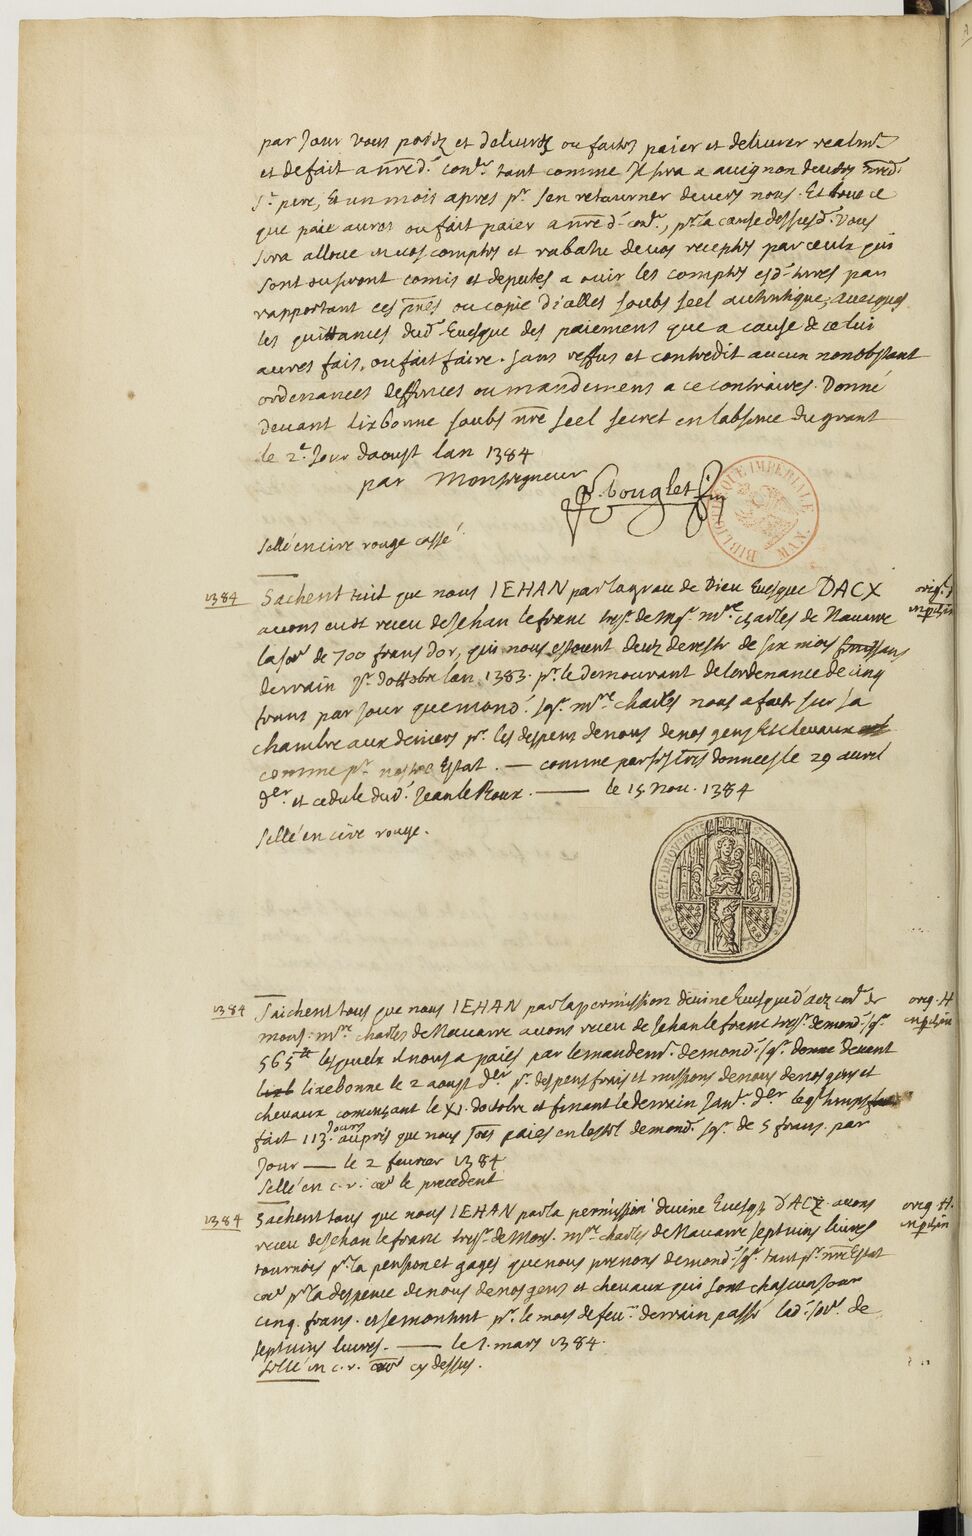 par Jour vous poiez et deliurez ou faites paier et deliurer realmt.
et de fait a nred. conr. tant comme Il sera a auignon deuers nred.
St. pere, Et un mois apres pr. sen retourner deuers nous. Et tout ce
que paie aures ou fait paier a nred. conr., pr. la cause dessusd. vous
sera alloue en uos comptes et rabatu de uos receptes par ceulx qui
sont ou seront comis et deputes a ouir les comptes esd. terres par
rapportant ces pnes ou copie dicelles soubs seel autentique, auecques
les quittances dud. Euesque des paiemens que a cause de ce lui
aures fais, ou fait faire. sans reffus et contredit aucun nonobstant
ordenances deffences ou mandemens a ce contraires. Donné
deuant lixbonne soubs nre seel secret en labsence du grant
le 2e. Jour daoust lan 1384
par Monseigneur
P. bouglet
BIBLIOTHEQUE IMPERIALE MAN.
Sellé en cire rouge cassé
1384 Sachent tuit que nous IEHAN par la grace de Dieu Euesque DACX
auons eu et receu de Jehan le franc tresr. de Mgr. mre. Charles de Nauarre
la sōe de 700 frans dor, qui nous estoient deuz de reste de six mois fenissans
derrain Jr. dottobre lan 1383. pr. le demourant de lordenance de cinq
frans par Jour que mond. sgr. mre Charles nous a faite sur sa
chambre aux deniers pr. les despens de nous de nos gens et cheuaux
comme pr. nostre Estat. — comme par ses lres donnees le 29 auril
der. et cedule dud. Jean le Roux. — le 15 nou. 1384
orig.
en pchin
Sellé en cire rouge.
1384 Saichent tous que nous IEHAN par la permission diuine Euesque d'acz conr. de
mons. mre Charles de Nauarre auons receu de Jehan le franc tresr. de mond. sgr.
565 lt lesquelx il nous a paies par le mandemt. de mond. sgr. donne deuant
lixebonne le 2 aoust der pr. despens frais et missions de nous de nos gens et
cheuaux comensant le XI. doctobre et fenant le derrain Janr. der lequel temps
fait 113 Jours. au pris que nous somes paies en lostel de mond. sgr. de 5 frans par
Jour — le 2 feurier 1384
orig. H.
en pchin
Sellé en c. r. coe le precedent
1384 Sachent tous que nous IEHAN par la permission diuine Euesqz DACZ auons
receu de Jehan le franc tresr. de Mons. mre Charles de Nauarre sept vins liures
tournois pr. la pension et gages que nous prenons de mond. sgr. tant pr. nre Estat
coe pr. la despence de nous de nos gens et cheuaux qui sont chascun Jour
cinq frans. et se montent pr. le mois de feur. derrain passé lad. sōe de
sept vins liures. — le 1. mars 1384.
orig H.
en pchin
Sellé en c. r. coe cy dessus.